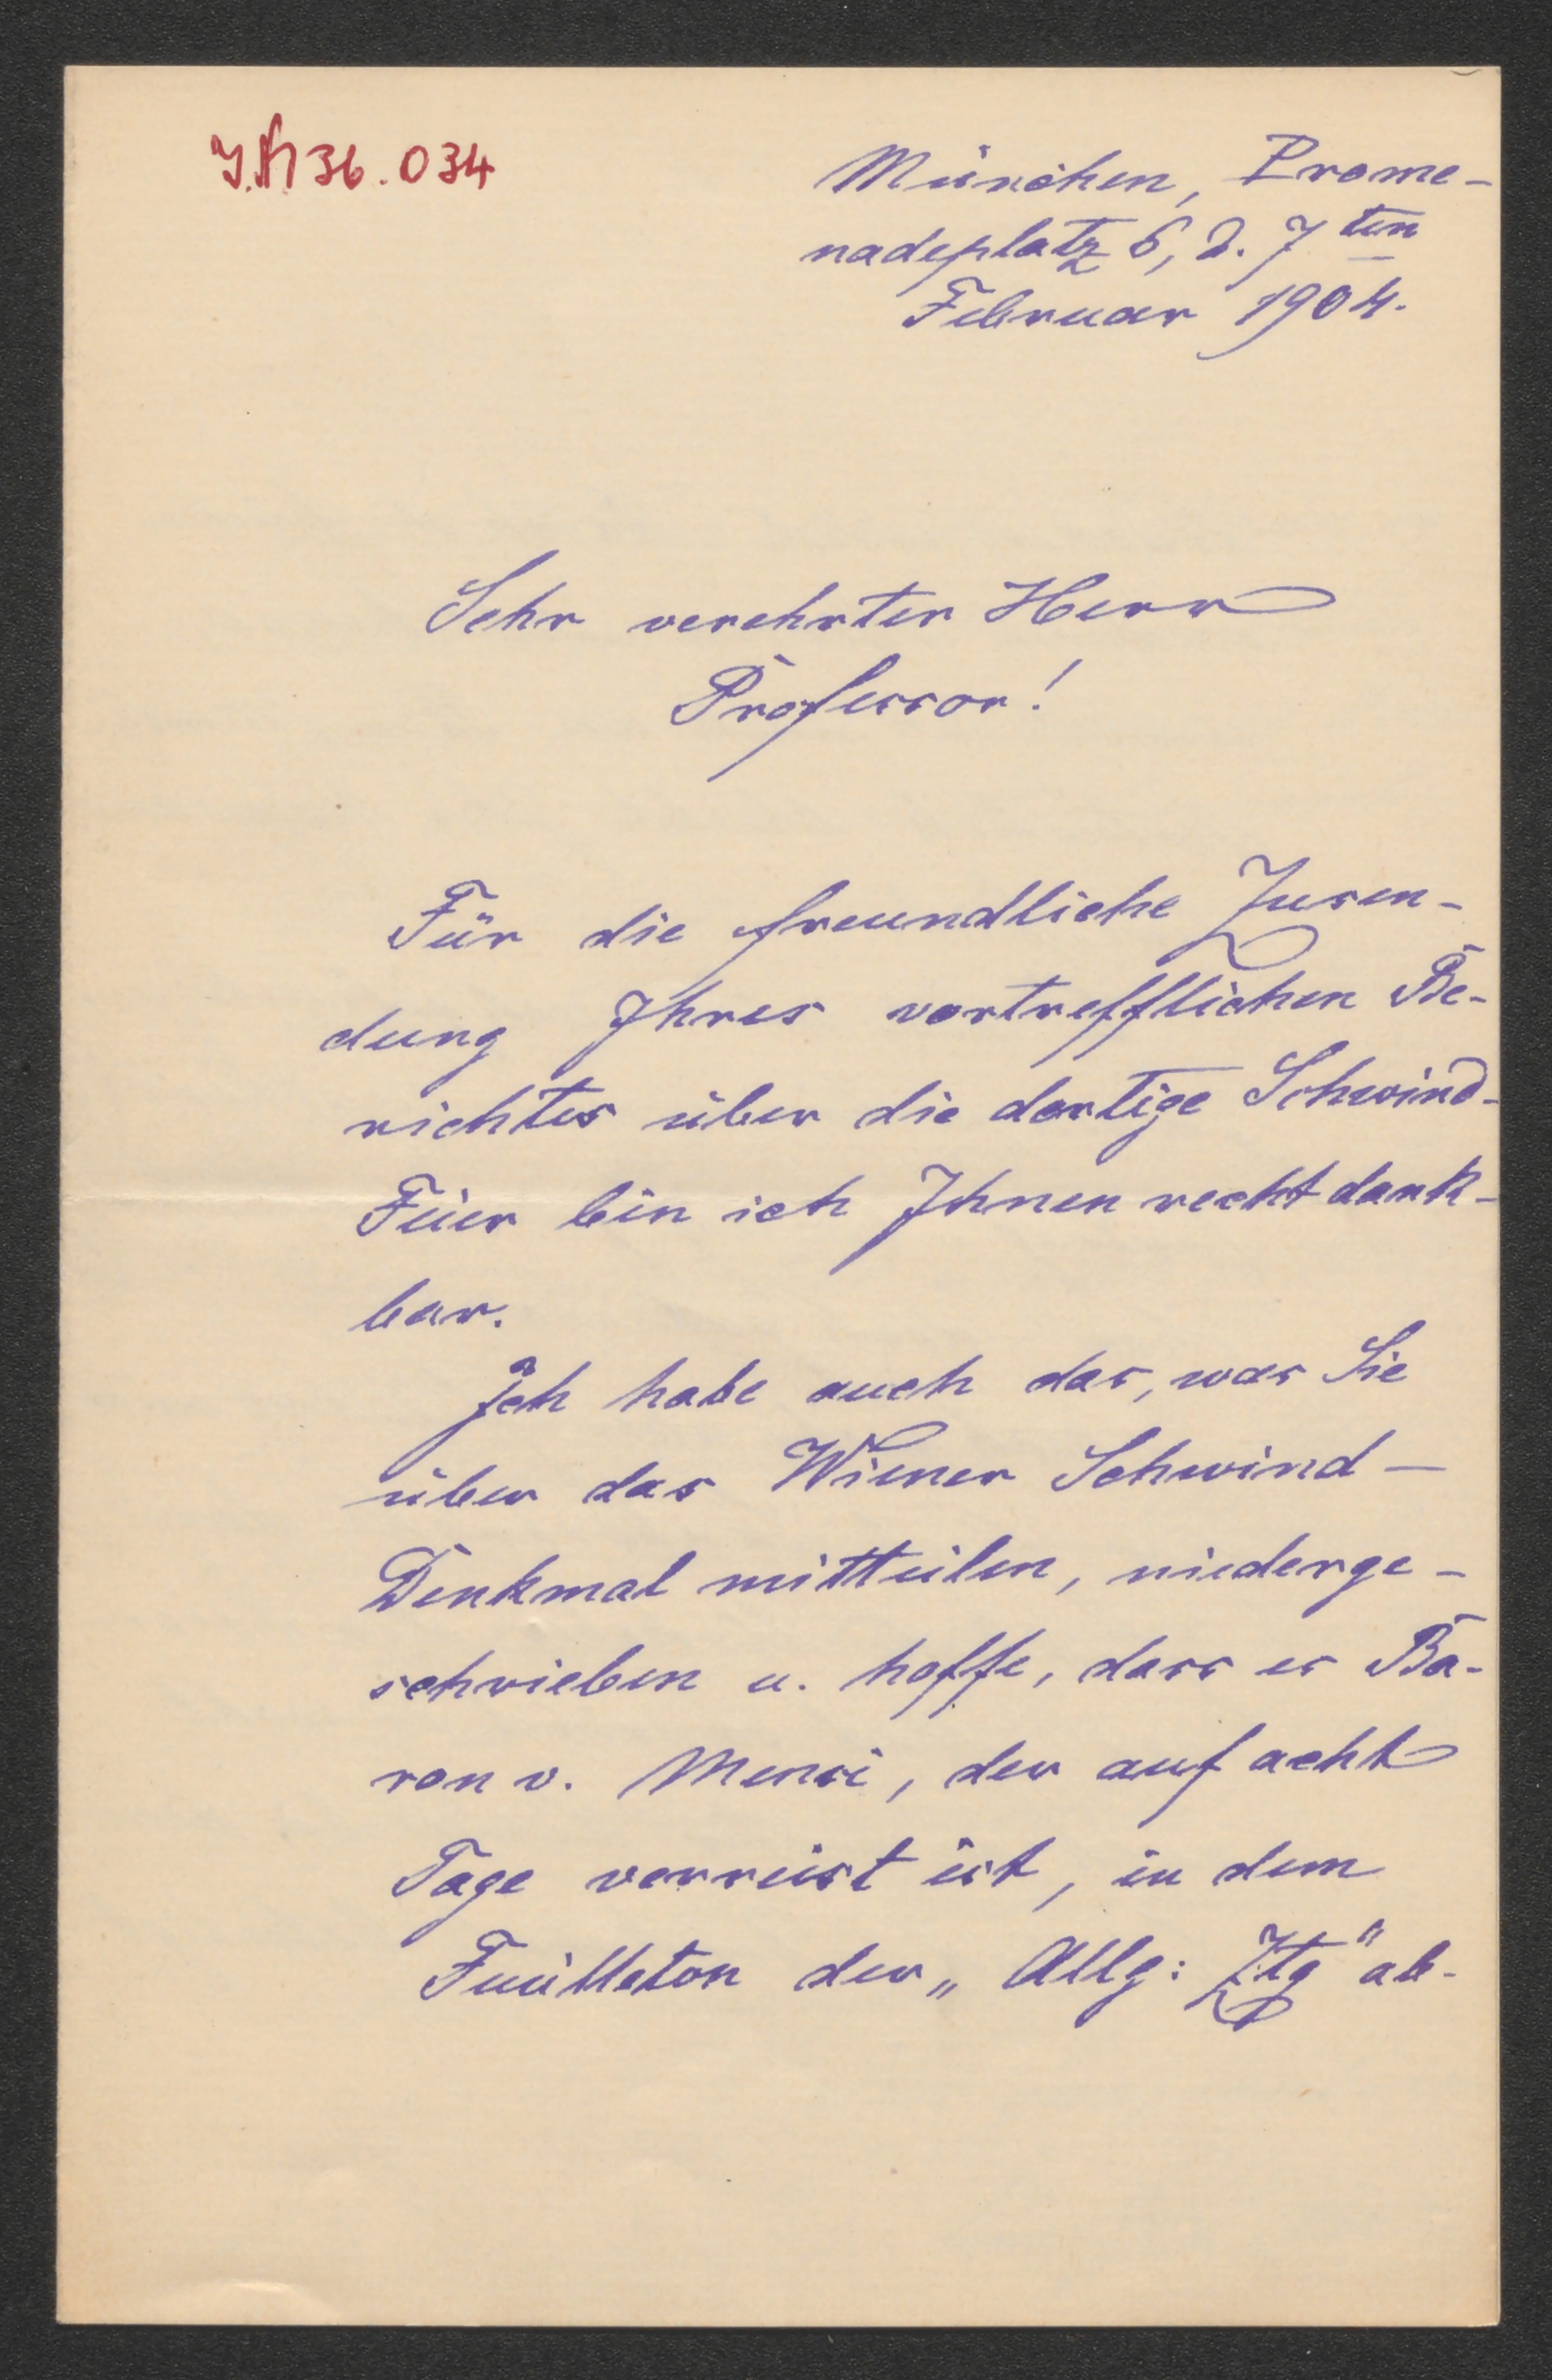 J.N 36.034
München, Prome-
nadeplatz 6, d. 7 ten
Februar 1904.
Sehr verehrter Herr
Professor!
Für die freundliche Zusen-
dung Ihres vortrefflichen Be-
richtes über die dortige Schwind-
Feier bin ich Ihnen recht dank-
bar.
Ich habe auch das, was Sie
über das Wiener Schwind-
Denkmal mitteilen, niederge-
schrieben u. hoffe, dass es Ba-
ron v. Mensi, der auf acht
Tage verreist ist, in dem
Feuilleton der „Allg: Ztg" ab-